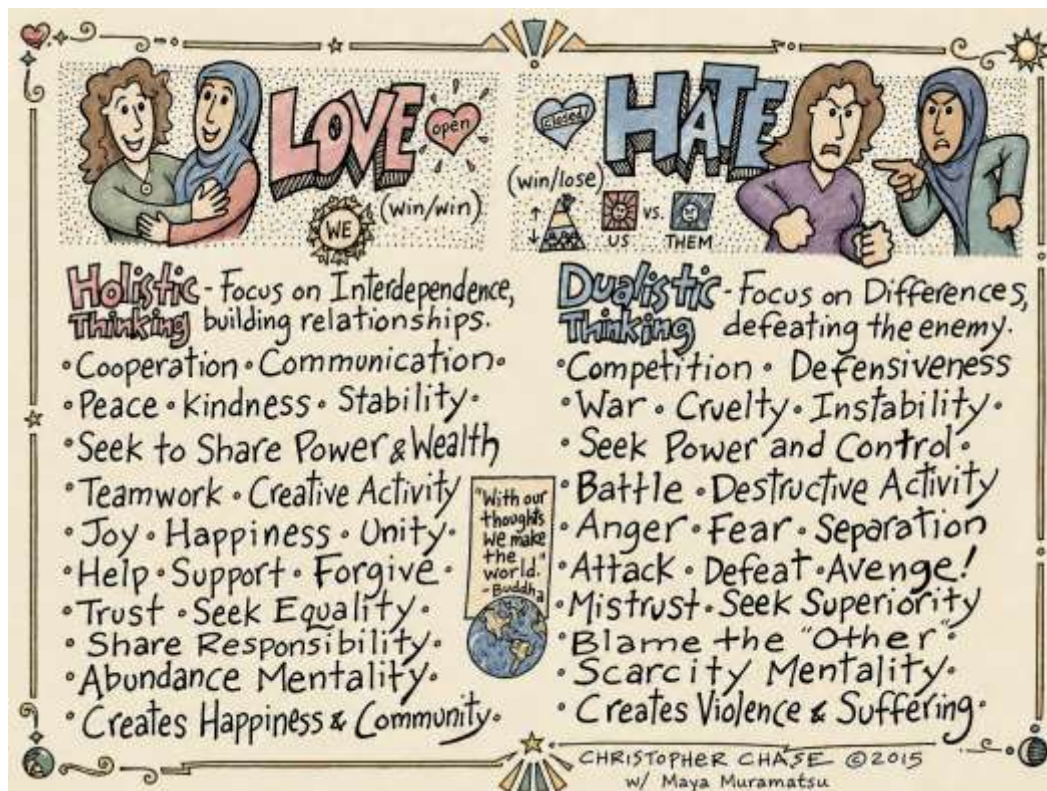 LOVE
open
(win/win)
WE
closed
HATE
(win/lose)
US vs. THEM
Holistic Thinking - Focus on Interdependence,
building relationships.
• Cooperation • Communication •
• Peace • Kindness • Stability •
• Seek to Share Power & Wealth
• Teamwork • Creative Activity
• Joy • Happiness • Unity •
• Help • Support • Forgive •
• Trust • Seek Equality •
• Share Responsibility •
• Abundance Mentality •
• Creates Happiness & Community •
"With our
thoughts
we make
the
world."
- Buddha
Dualistic Thinking - Focus on Differences,
defeating the enemy.
• Competition • Defensiveness
• War • Cruelty • Instability •
• Seek Power and Control •
• Battle • Destructive Activity
• Anger • Fear • Separation
• Attack • Defeat • Avenge!
• Mistrust • Seek Superiority
• Blame the "Other" •
• Scarcity Mentality •
• Creates Violence & Suffering •
CHRISTOPHER CHASE ©2015
w/ Maya Muramatsu